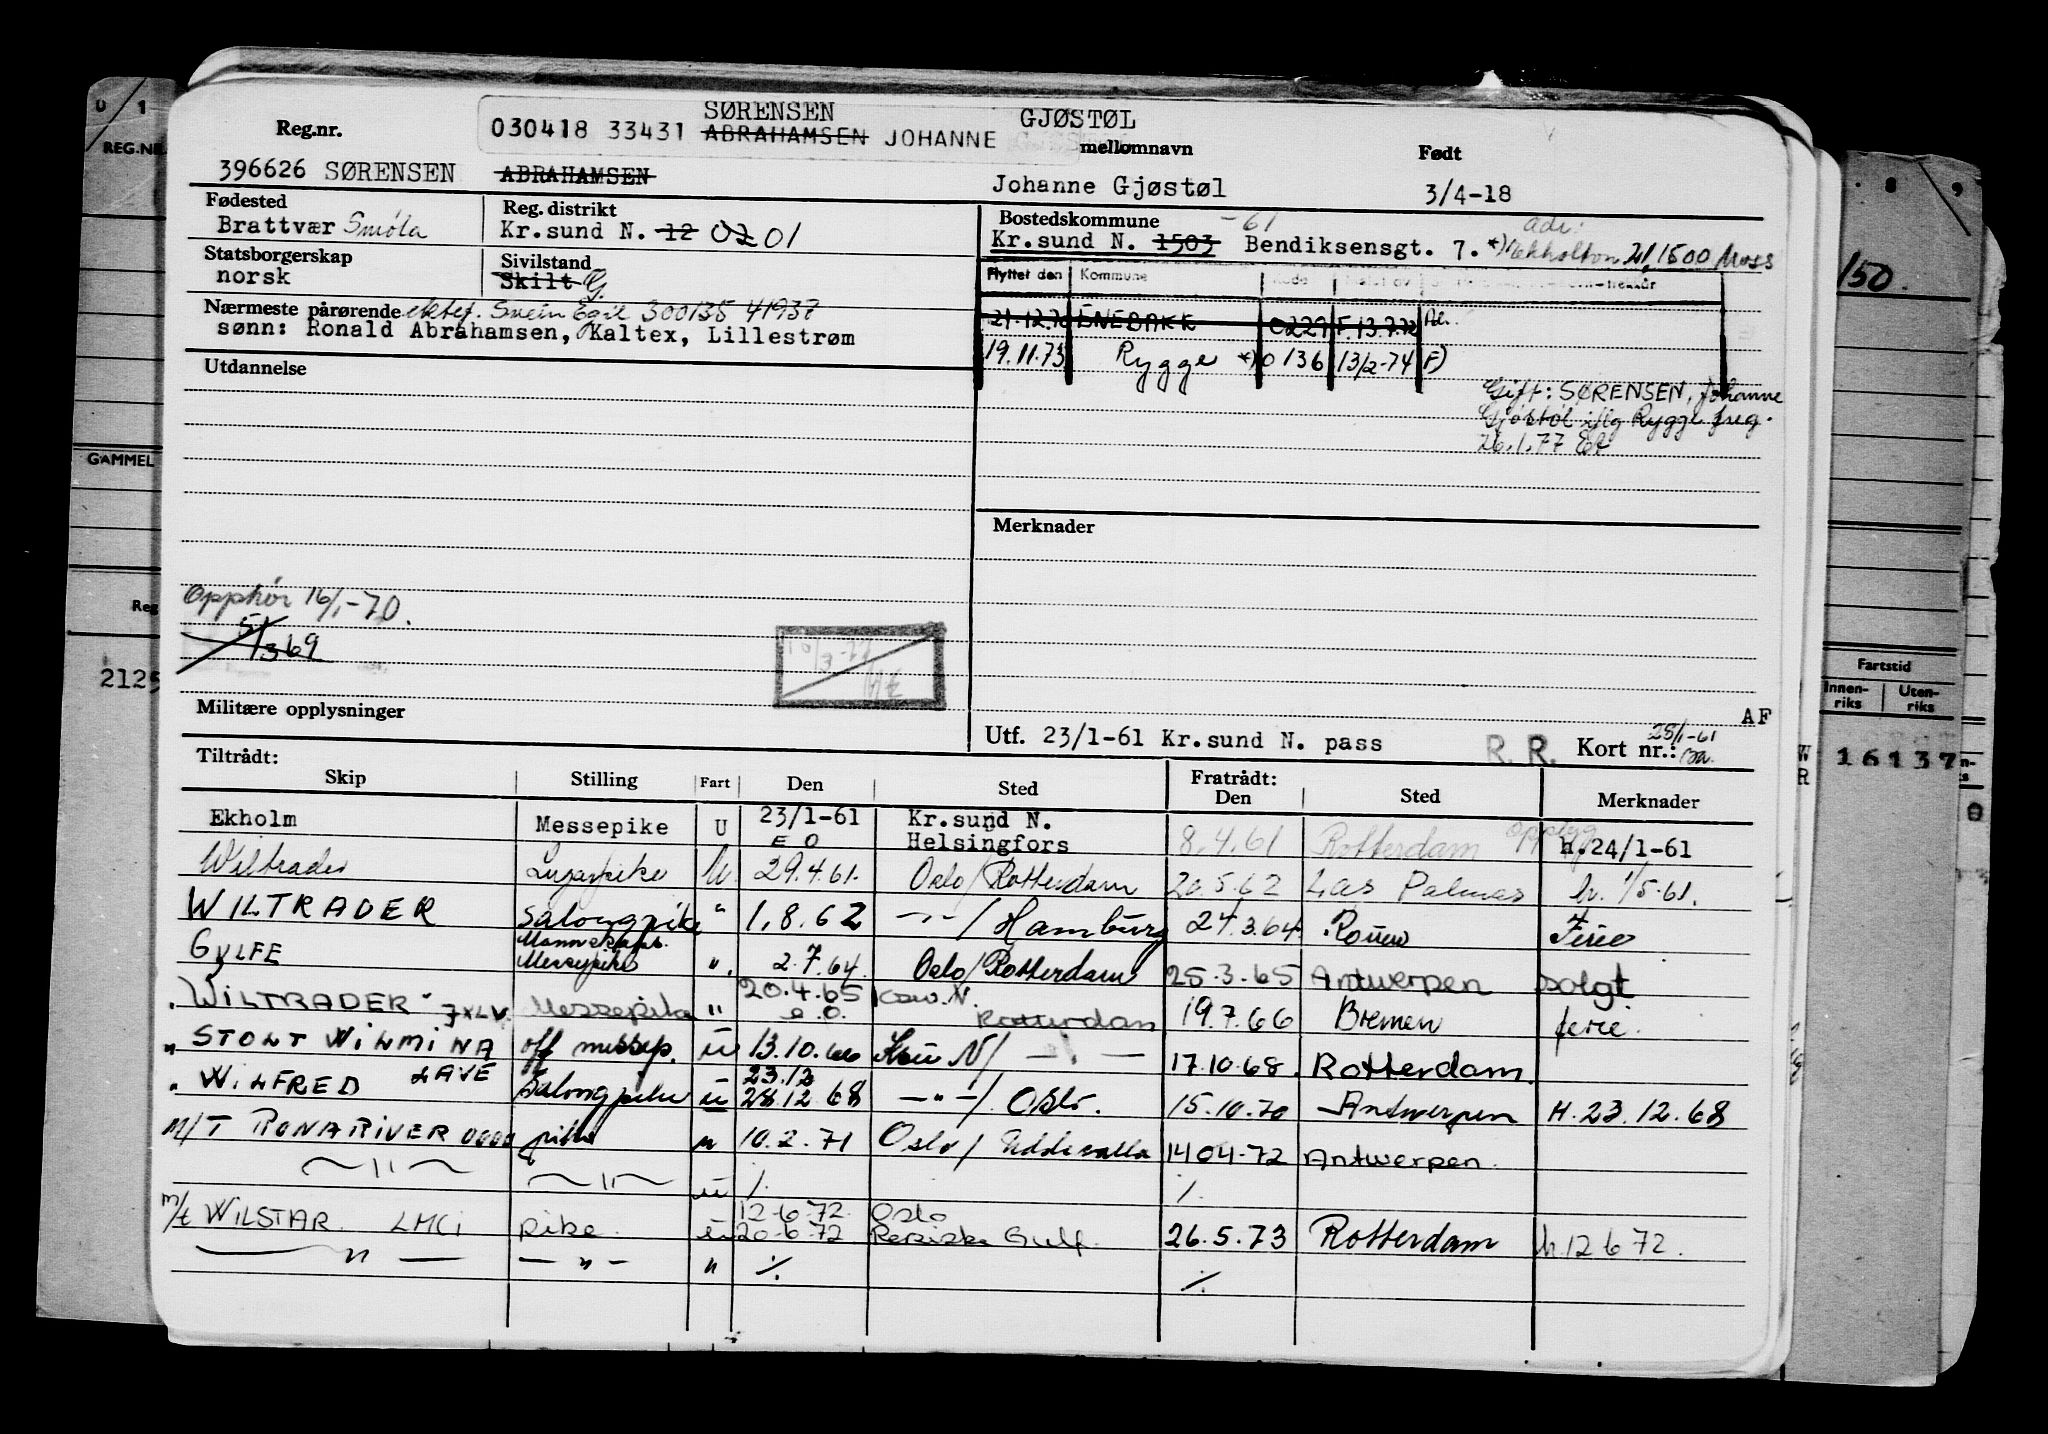 SØRENSEN GJØSTØL
Reg.nr. 030418 33431 ABRAHAMSEN JOHANNE mellomnavn Født
396626 SØRENSEN ABRAHAMSEN Johanne Gjøstøl 3/4-18
Fødested Reg. distrikt Bostedskommune -61 adr:
Brattvær Smøla Kr.sund N. 12 02 01 Kr.sund N. 1503 Bendiksensgt. 7. *) 21, 1500 Moss
Statsborgerskap Sivilstand Flyttet den Kommune
norsk Skilt G.
Nærmeste pårørende ektef. Svein Egil 300135 41937 21.12.70 ENEBAKK 0229 F. 13.7.72
sønn: Ronald Abrahamsen, Kaltex, Lillestrøm 19.11.73 Rygge *) 0136 13/2-74 F)
Utdannelse
Gift: SØRENSEN, Johanne
Gjøstøl iflg Rygge freg.
26.1.77
Merknader
Opphør 16/1-70.
5/369
Militære opplysninger AF
Utf. 23/1-61 Kr.sund N. pass R. R. Kort nr.: 25/1-61
Tiltrådt: Fratrådt:
Skip Stilling Fart Den Sted Den Sted Merknader
Ekholm Messepike U 23/1-61 Kr.sund N.
E O Helsingfors 8.4.61 Rotterdam h.24/1-61
Wiltrader Lugarpike U 29.4.61. Oslo/Rotterdam 20.5.62 Las Palmas h. 1/5.61.
WILTRADER Salongpike " 1.8.62 -"-/Hamburg 24.3.64 Rouen Ferie
GYLFE Mannskaps. Messepike ". 2.7.64. Oslo/Rotterdam 25.3.65 Antwerpen solgt
"WILTRADER" JXLV Messepike " 20.4.65 e.o. Ksu. N. Rotterdam 19.7.66 Bremen ferie.
" STOLT WILMINA off messep. u 13.10.66 Ksu N/ -"- 17.10.68. Rotterdam.
" WILFRED LAVE Salongpike u 23.12 28.12.68 -"-/. Oslo. 15.10.70 Antwerpen H.23.12.68
M/T RONARIVER pike u 10.2.71 Oslo/Uddevalla 14 04-72 Antwerpen.
-"- -"- u ./. ./.
m/t WILSTAR. LMCI pike. u 12-6-72. Oslo
20-6-72. Persiske Gulf. 26.5.73 Rotterdam h.12 6 72.
-"- -"- " ./. ./.
0/1
REG.NR.
GAMMEL
Reg
2125
8 9
150.
Fartstid
Innenriks Utenriks
W
R
16137